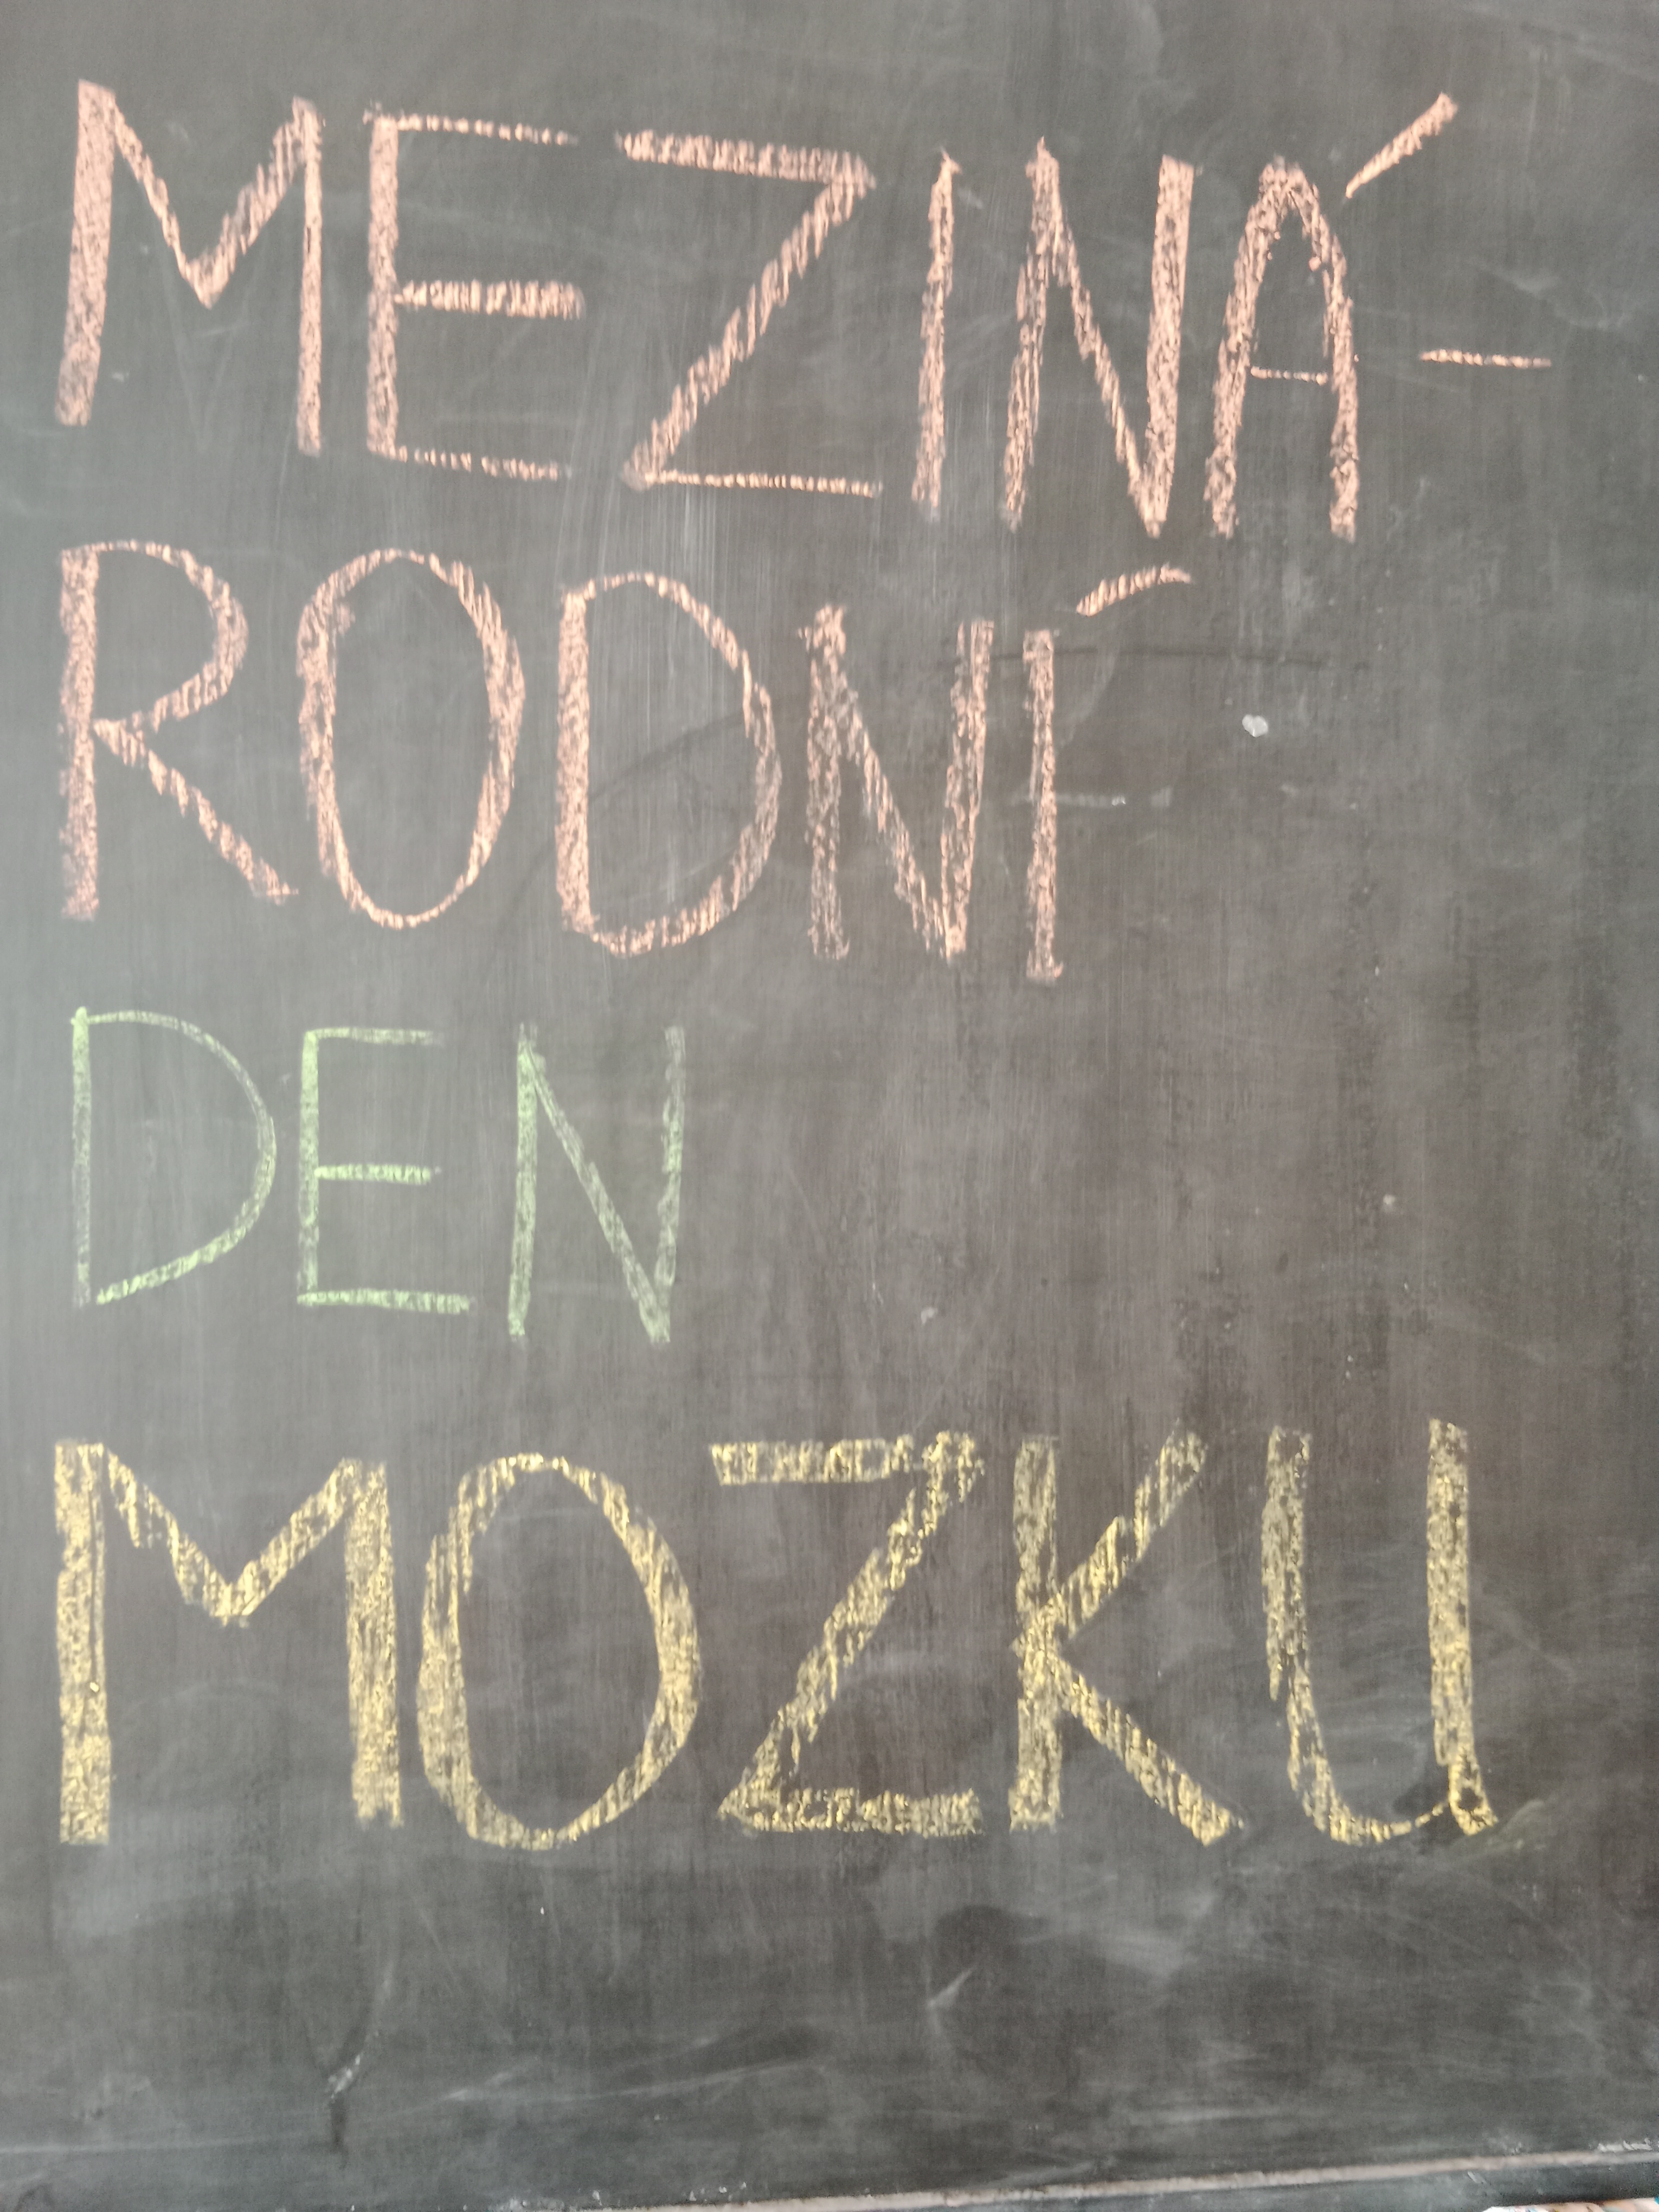 MEZINÁ-
RODNÍ
DEN
MOZKU